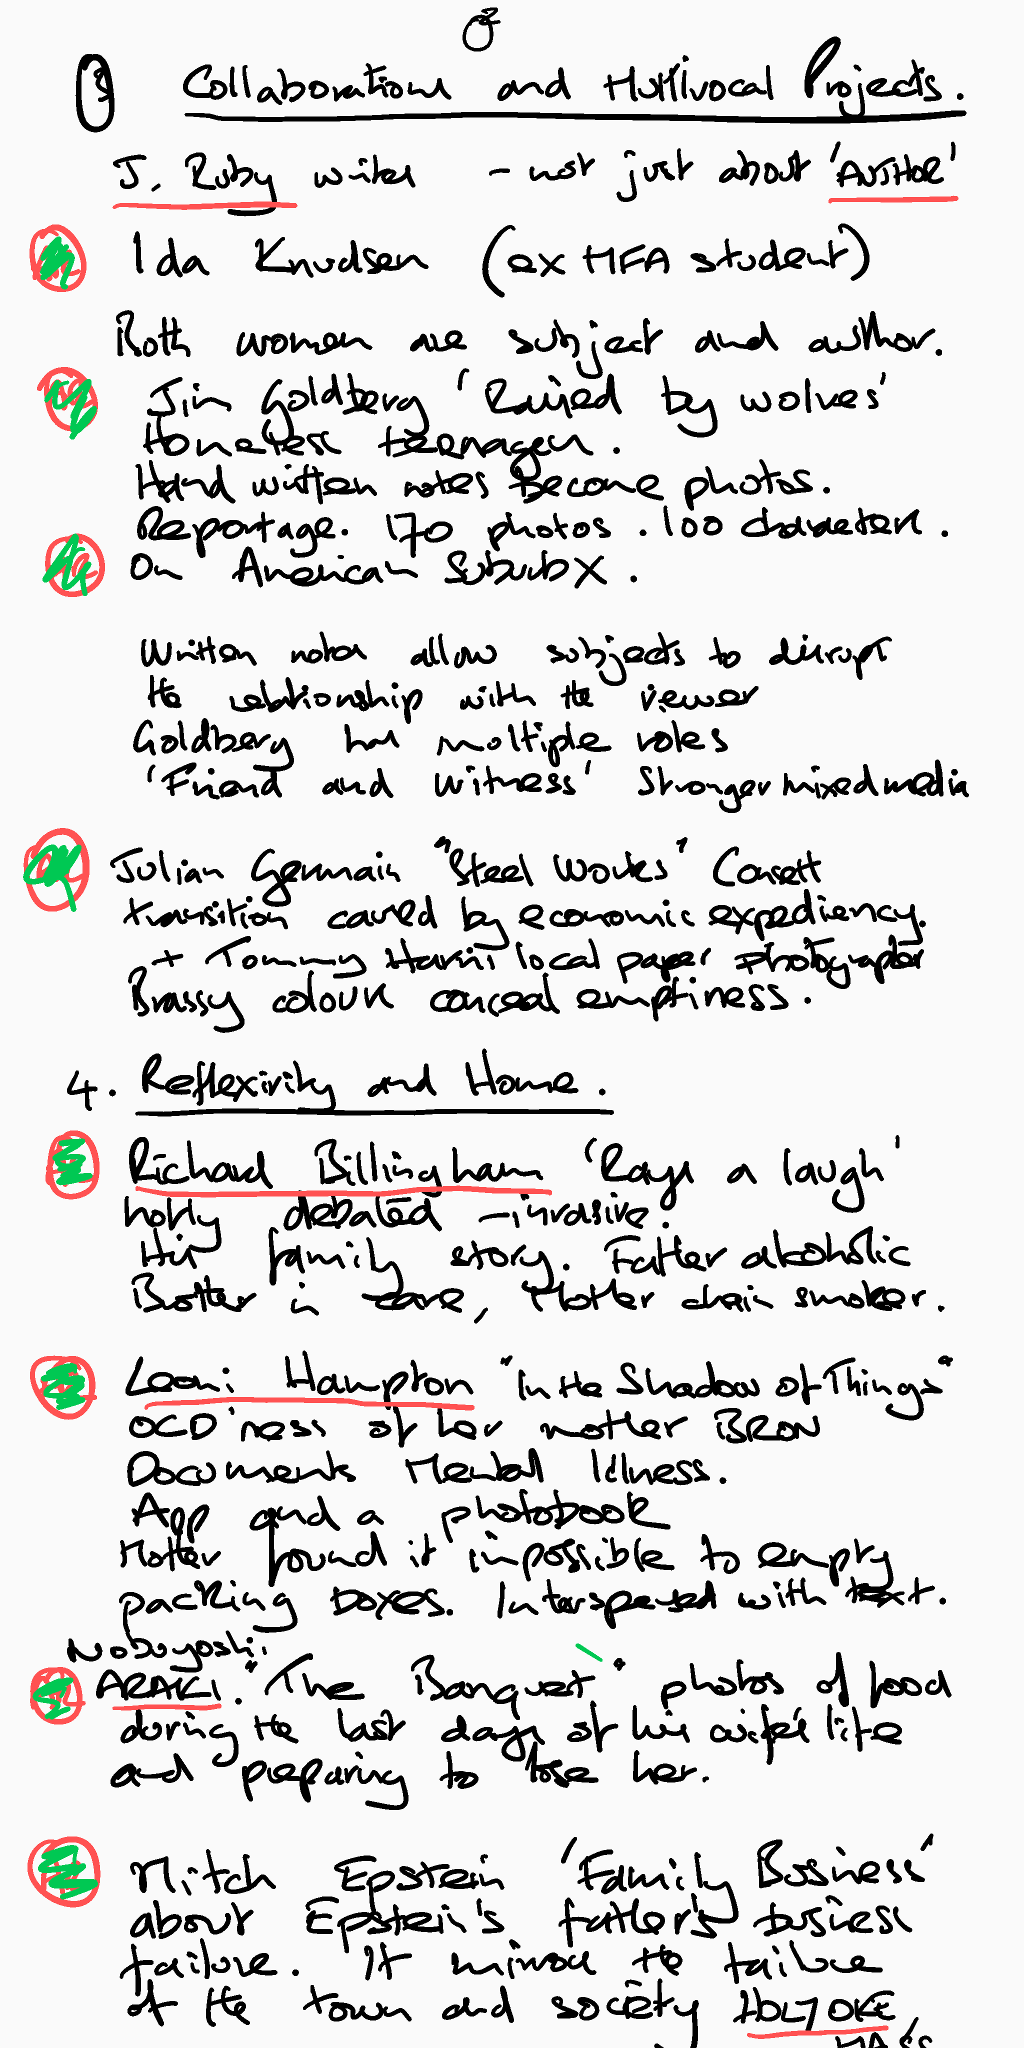 3 Collaborations and Multivocal Projects.
J. Ruby writes - not just about 'AUTHOR'
Ida Knudsen (ex MFA student)
Both women are subject and author.
Jim Goldberg 'Raised by wolves'
Homeless teenagers.
Hand written notes become photos.
Reportage. 170 photos. 100 characters.
On American Suburb X.
Written notes allow subjects to disrupt
the relationship with the viewer
Goldberg has multiple roles
'Friend and Witness' Stronger mixed media
Julian Germain "Steel Works" Consett
transition caused by economic expediency.
+ Tommy Harris local paper photographer
Brassy colours conceal emptiness.
4. Reflexivity and Home.
Richard Billingham 'Rays a laugh'
hotly debated - invasive.
His family story. Father alcoholic
Brother in care, Mother chain smoker.
Leoni Hampton "In the Shadow of Things"
OCD'ness of her mother BRON
Documents Mental Illness.
App and a photobook
Mother found it impossible to empty
packing boxes. Interspersed with text.
Nobuyoshi
ARAKI. "The Banquet" photos of food
during the last days of his wife's life
and preparing to lose her.
Mitch Epstein 'Family Business'
about Epstein's father's business
failure. It mirrors the failure
of the town and society HOLYOKE
MASS